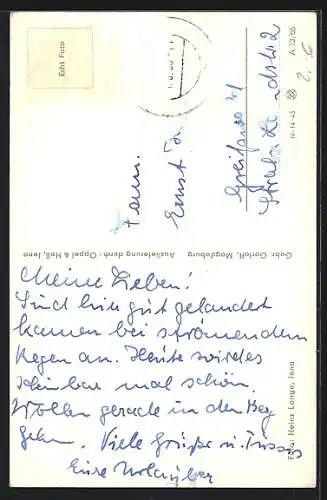 Echt Foto
A 73/55
IV-14-45
Fam.
Ernst
Greifswald
Gebr. Garloff, Magdeburg
Auslieferung durch: Oppel & Heß, Jena
Meine Lieben!
Sind hier gut gelandet
kamen bei strömendem
Regen an. Heute wird es
scheinbar mal schön.
Wollen gerade in den Berg
gehen. Viele Grüße u. Küsse
Eure Urlauber
Foto: Heinz Lange, Jena